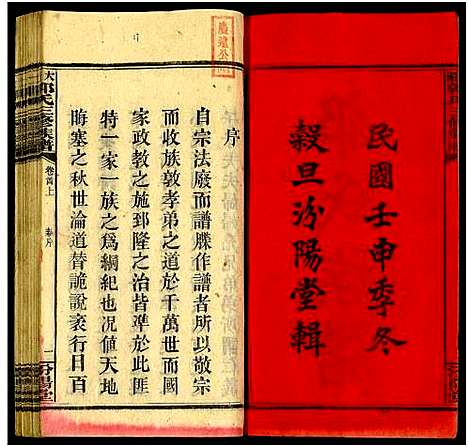 民國壬申季冬
穀旦汾陽堂輯
序
自宗法廢而譜牒作譜者所以敬宗
而收族敦孝弟之道於千萬世而國
家政教之施郅隆之治皆準於此匪
特一家一族之為綱紀也況值天地
晦塞之秋世淪道替詭說袤行日百
郭氏三修族譜
卷首上
序
一
汾陽堂